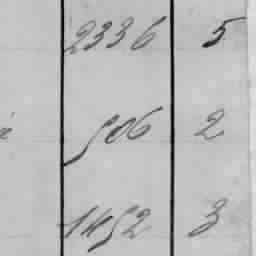 2336 5
506 2
1452 3